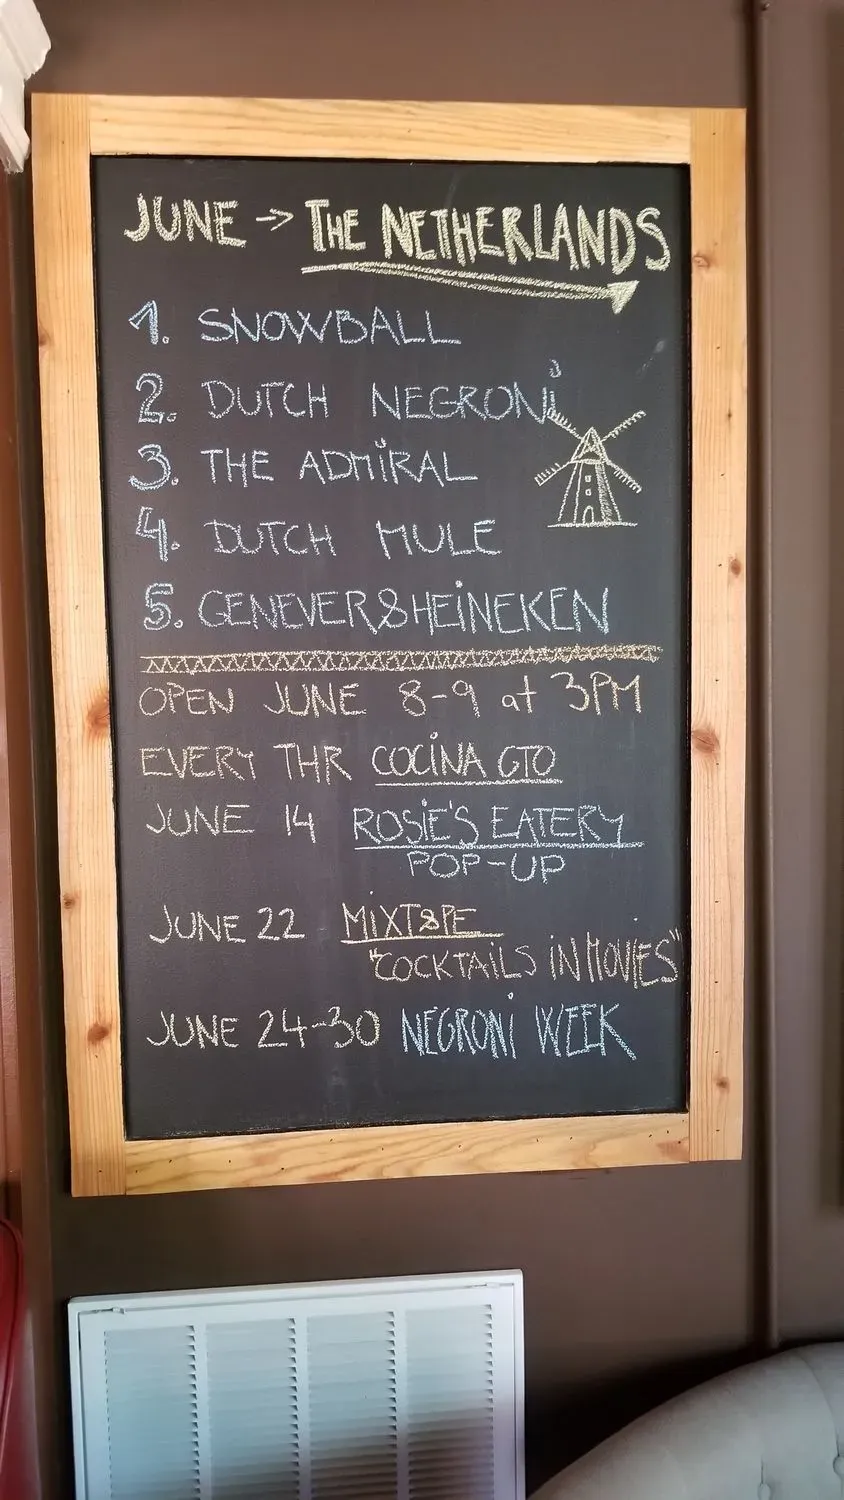 JUNE → THE NETHERLANDS
1. SNOWBALL
2. DUTCH NEGRONi
3. THE ADMiRAL
4. DUTCH MULE
5. GENEVER&HEiNEKEN
OPEN JUNE 8-9 at 3PM
EVERY THR COCiNA GTO
JUNE 14 ROSiE'S EATERY
POP-UP
JUNE 22 MiXT&PE
"COCKTAiLS iN MOViES"
JUNE 24-30 NEGRONi WEEK